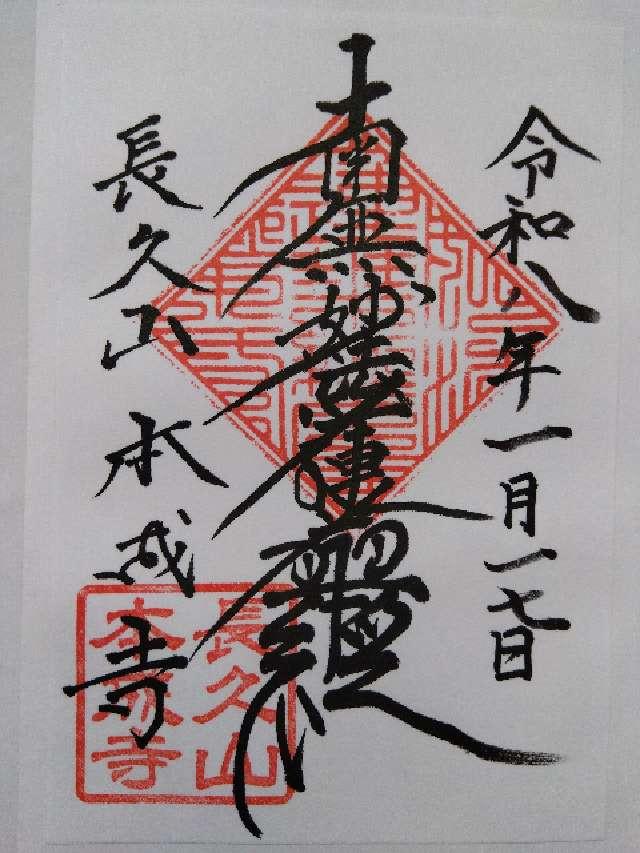 令和八年一月一七日
南無妙法蓮華經
長久山 本成寺
長久山
本成寺